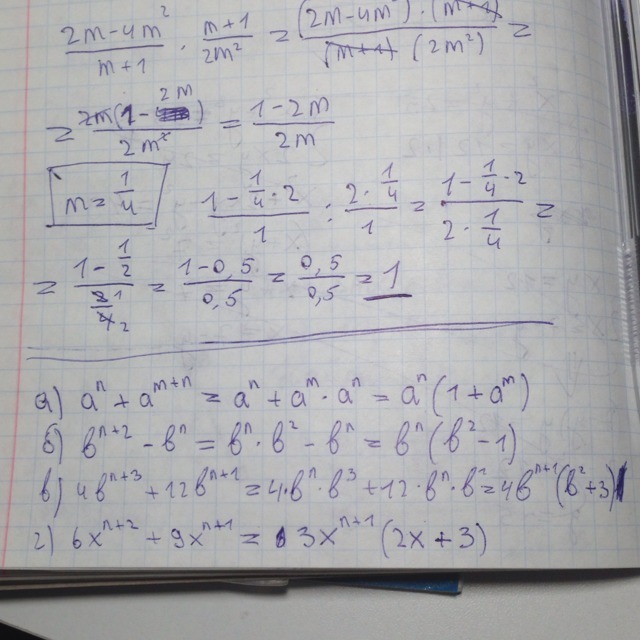 (2m-4m²)/(m+1) · (m+1)/(2m²) = ((2m-4m²)·(m+1))/((m+1)(2m²)) =
= 2m(1-2m)/2m² = (1-2m)/2m
m = 1/4 (1-1/4·2)/1 : (2·1/4)/1 = (1-1/4·2)/(2·1/4) =
= (1-1/2)/(2¹/4₂) = (1-0,5)/0,5 = 0,5/0,5 = 1
а) aⁿ + aᵐ⁺ⁿ = aⁿ + aᵐ · aⁿ = aⁿ(1+aᵐ)
б) bⁿ⁺² - bⁿ = bⁿ · b² - bⁿ = bⁿ(b²-1)
в) 4bⁿ⁺³ + 12bⁿ⁺¹ = 4·bⁿ·b³ + 12·bⁿ·b¹ = 4bⁿ⁺¹(b²+3)
г) 6xⁿ⁺² + 9xⁿ⁺¹ = 3xⁿ⁺¹(2x+3)